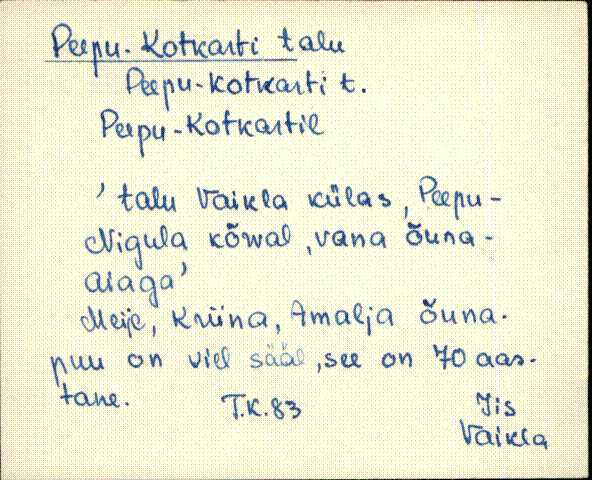 Peepu-Kotkasti talu
Peepu-Kotkasti t.
Peepu-Kotkastil
' talu Vaikla külas, Peepu-
Nigula kõwal, vana õuna-
aiaga'
Meije, Kriina, Amalja õuna-
puu on viel sääl, see on 70 aas-
tane.
T.K. 83
Jis
Vaikla